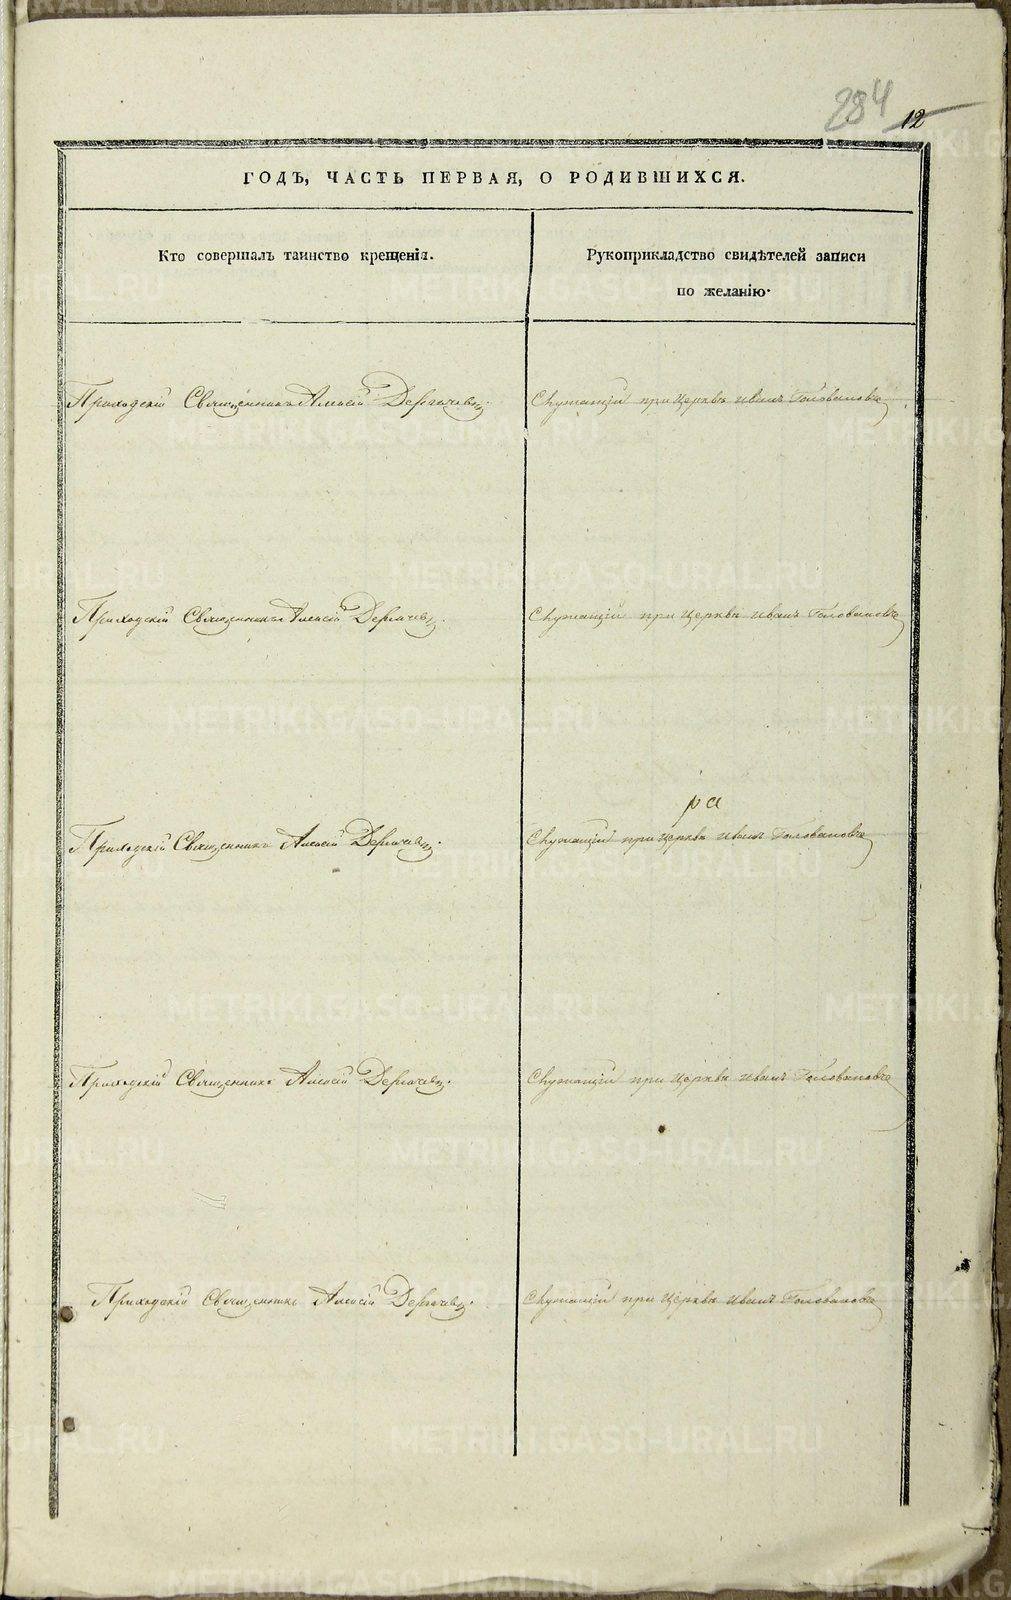 284 12
ГОДЪ, ЧАСТЬ ПЕРВАЯ, О РОДИВШИХСЯ.
Кто совершалъ таинство крещенія.
Рукоприкладство свидѣтелей записи
по желанію.
Приходскій Священникъ Алексій
Служащій при церквѣ Иванъ Головановъ
Приходскій Священникъ Алексій
Служащій при церквѣ Иванъ Головановъ
ра
Приходскій Священникъ Алексій
Служащій при церквѣ Иванъ Головановъ
Приходскій Священникъ Алексій
Служащій при церквѣ Иванъ Головановъ
Приходскій Священникъ Алексій
Служащій при церквѣ Иванъ Головановъ
METRIKI.GASO-URAL.RU